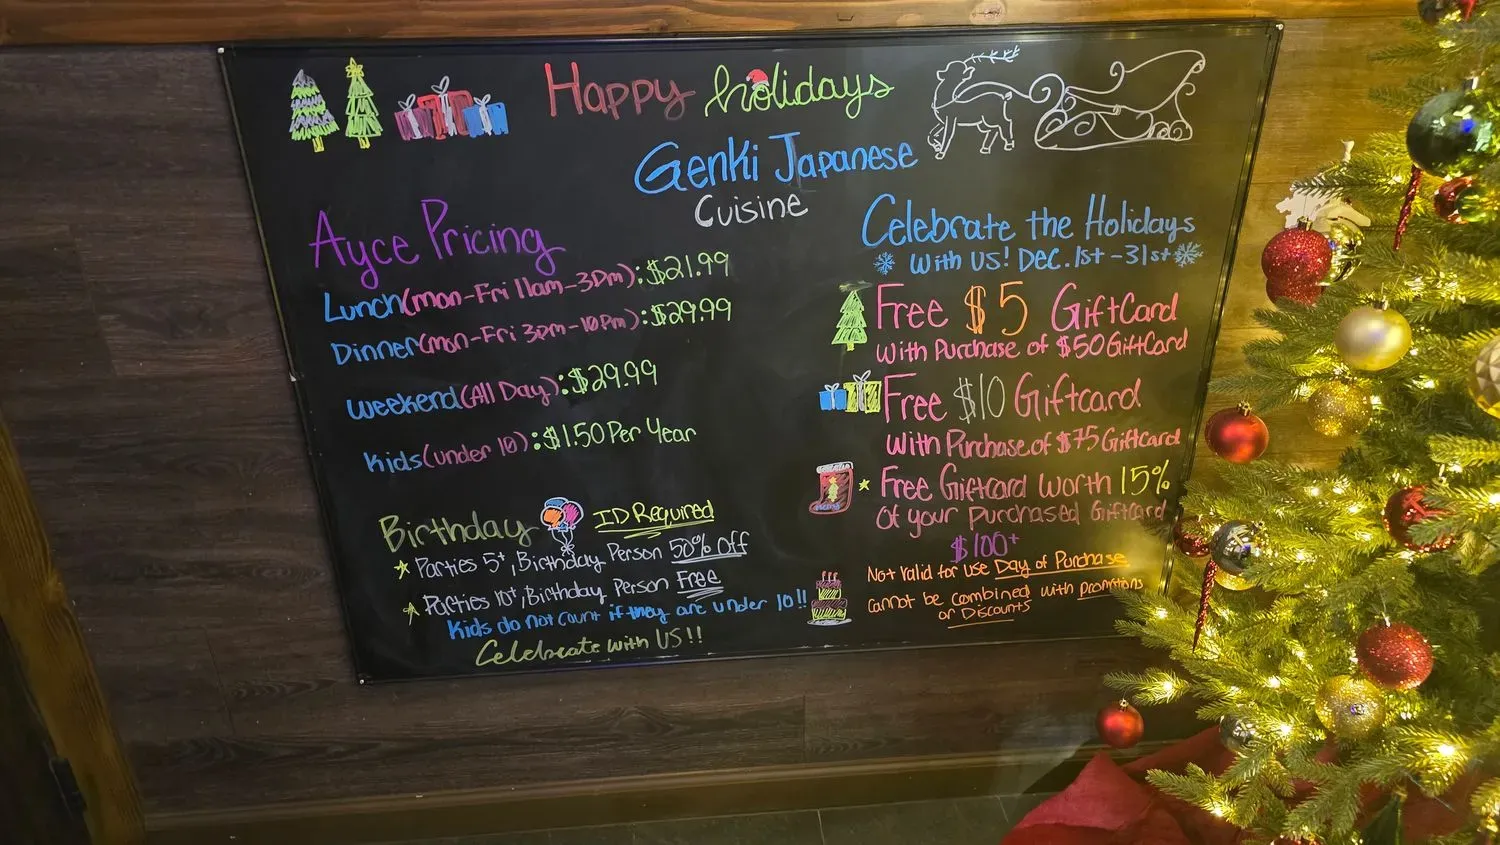 Happy holidays
Genki Japanese
Cuisine
Ayce Pricing
Lunch(mon-Fri 11am-3pm):$21.99
Dinner(mon-Fri 3pm-10pm):$29.99
Weekend(All Day):$29.99
Kids(under 10):$1.50 Per Year
Birthday ID Required
Parties 5+, Birthday Person 50% Off
Parties 10+, Birthday Person Free
Kids do not count if they are under 10!!
Celebrate with US!!
Celebrate the Holidays
With US! Dec. 1st - 31st
Free $5 GiftCard
With Purchase of $50 GiftCard
Free $10 Giftcard
With Purchase of $75 Giftcard
Free Giftcard worth 15%
Of your Purchased Giftcard
$100+
Not valid for use Day of Purchase
Cannot be combined with promotions
or Discounts